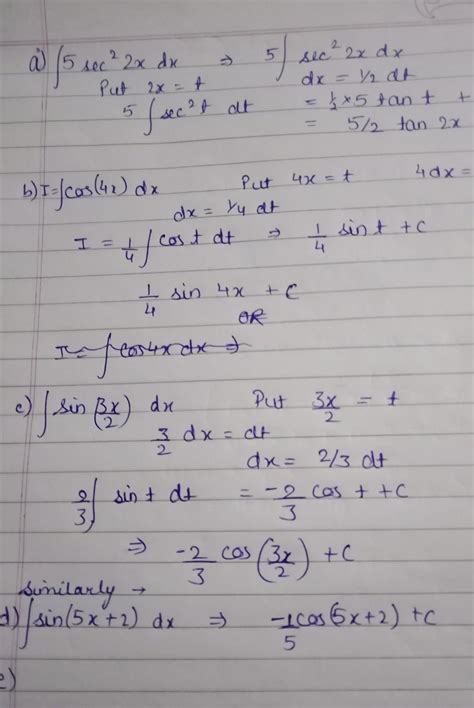 a) ∫5 sec² 2x dx ⇒ 5∫ sec² 2x dx
Put 2x = t dx = 1/2 dt
5∫ sec² t dt = 1/2 × 5 tan t +
= 5/2 tan 2x
b) I = ∫cos(4x) dx Put 4x = t 4dx =
dx = 1/4 dt
I = 1/4 ∫ cos t dt ⇒ 1/4 sin t + C
1/4 sin 4x + C
OR
I = ∫ cos4x dx ⇒
c) ∫ sin (3x/2) dx Put 3x/2 = t
3/2 dx = dt
dx = 2/3 dt
2/3 ∫ sin t dt = -2/3 cos t + C
⇒ -2/3 cos (3x/2) + C
Similarly →
d) ∫ sin(5x+2) dx ⇒ -1/5 cos(5x+2) + C
e)